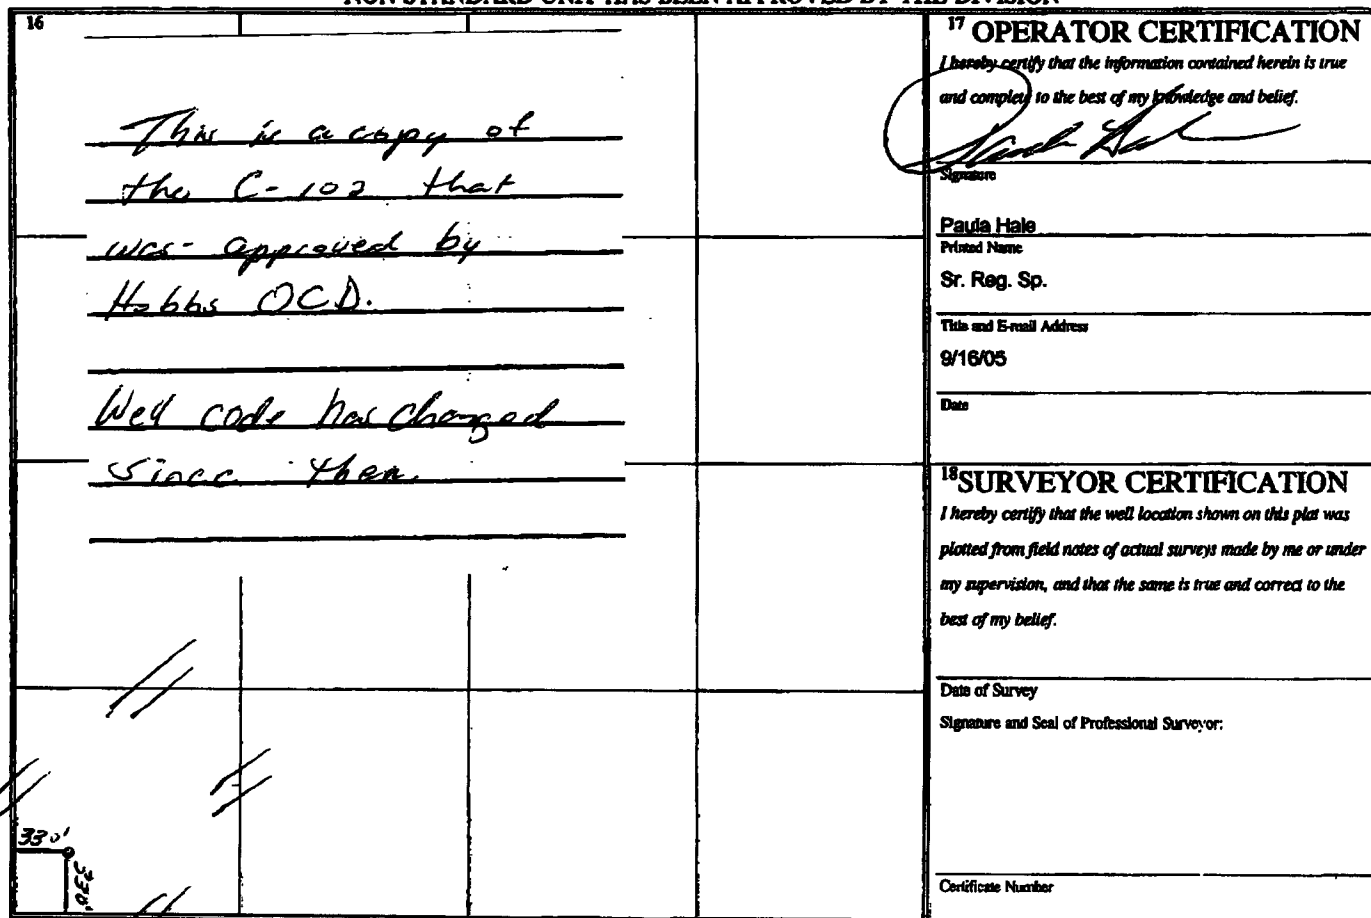 NON-STANDARD UNIT HAS BEEN APPROVED BY THE DIVISION
16
This is a copy of
the C-102 that
was approved by
Hobbs OCD.
Well code has changed
since then.
330'
330'
17 OPERATOR CERTIFICATION
I hereby certify that the information contained herein is true
and complete to the best of my knowledge and belief.
Signature
Paula Hale
Printed Name
Sr. Reg. Sp.
Title and E-mail Address
9/16/05
Date
18 SURVEYOR CERTIFICATION
I hereby certify that the well location shown on this plat was
plotted from field notes of actual surveys made by me or under
my supervision, and that the same is true and correct to the
best of my belief.
Date of Survey
Signature and Seal of Professional Surveyor:
Certificate Number